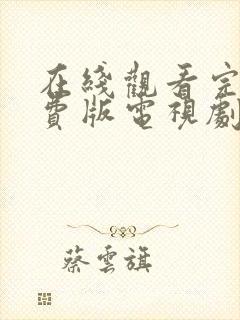 在綫觀看完
費版電視劇
蔡雲旗